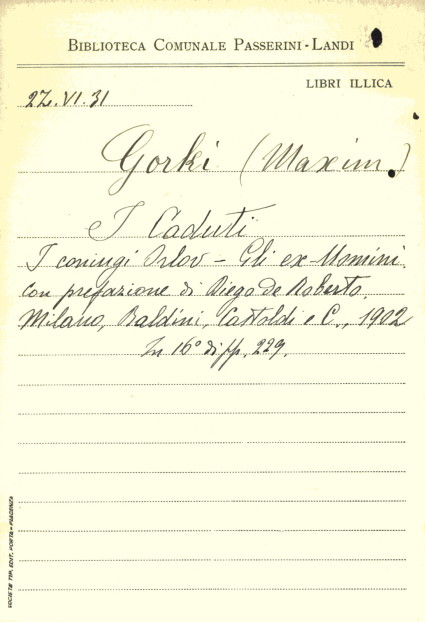 BIBLIOTECA COMUNALE PASSERINI-LANDI
LIBRI ILLICA
2Z.VI.31
Gorki (Maxim.)
I Caduti
I coniugi Orlov - Gli ex-Uomini.
con prefazione di Diego de Roberto.
Milano, Baldini, Castoldi e C., 1902
In 16° di pp. 229.
SOCIETÀ TIP. EDIT. PORTA - PIACENZA